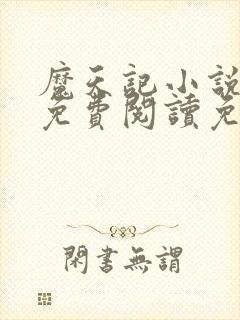 魔天記小說
免費閱讀免
閑書無謂